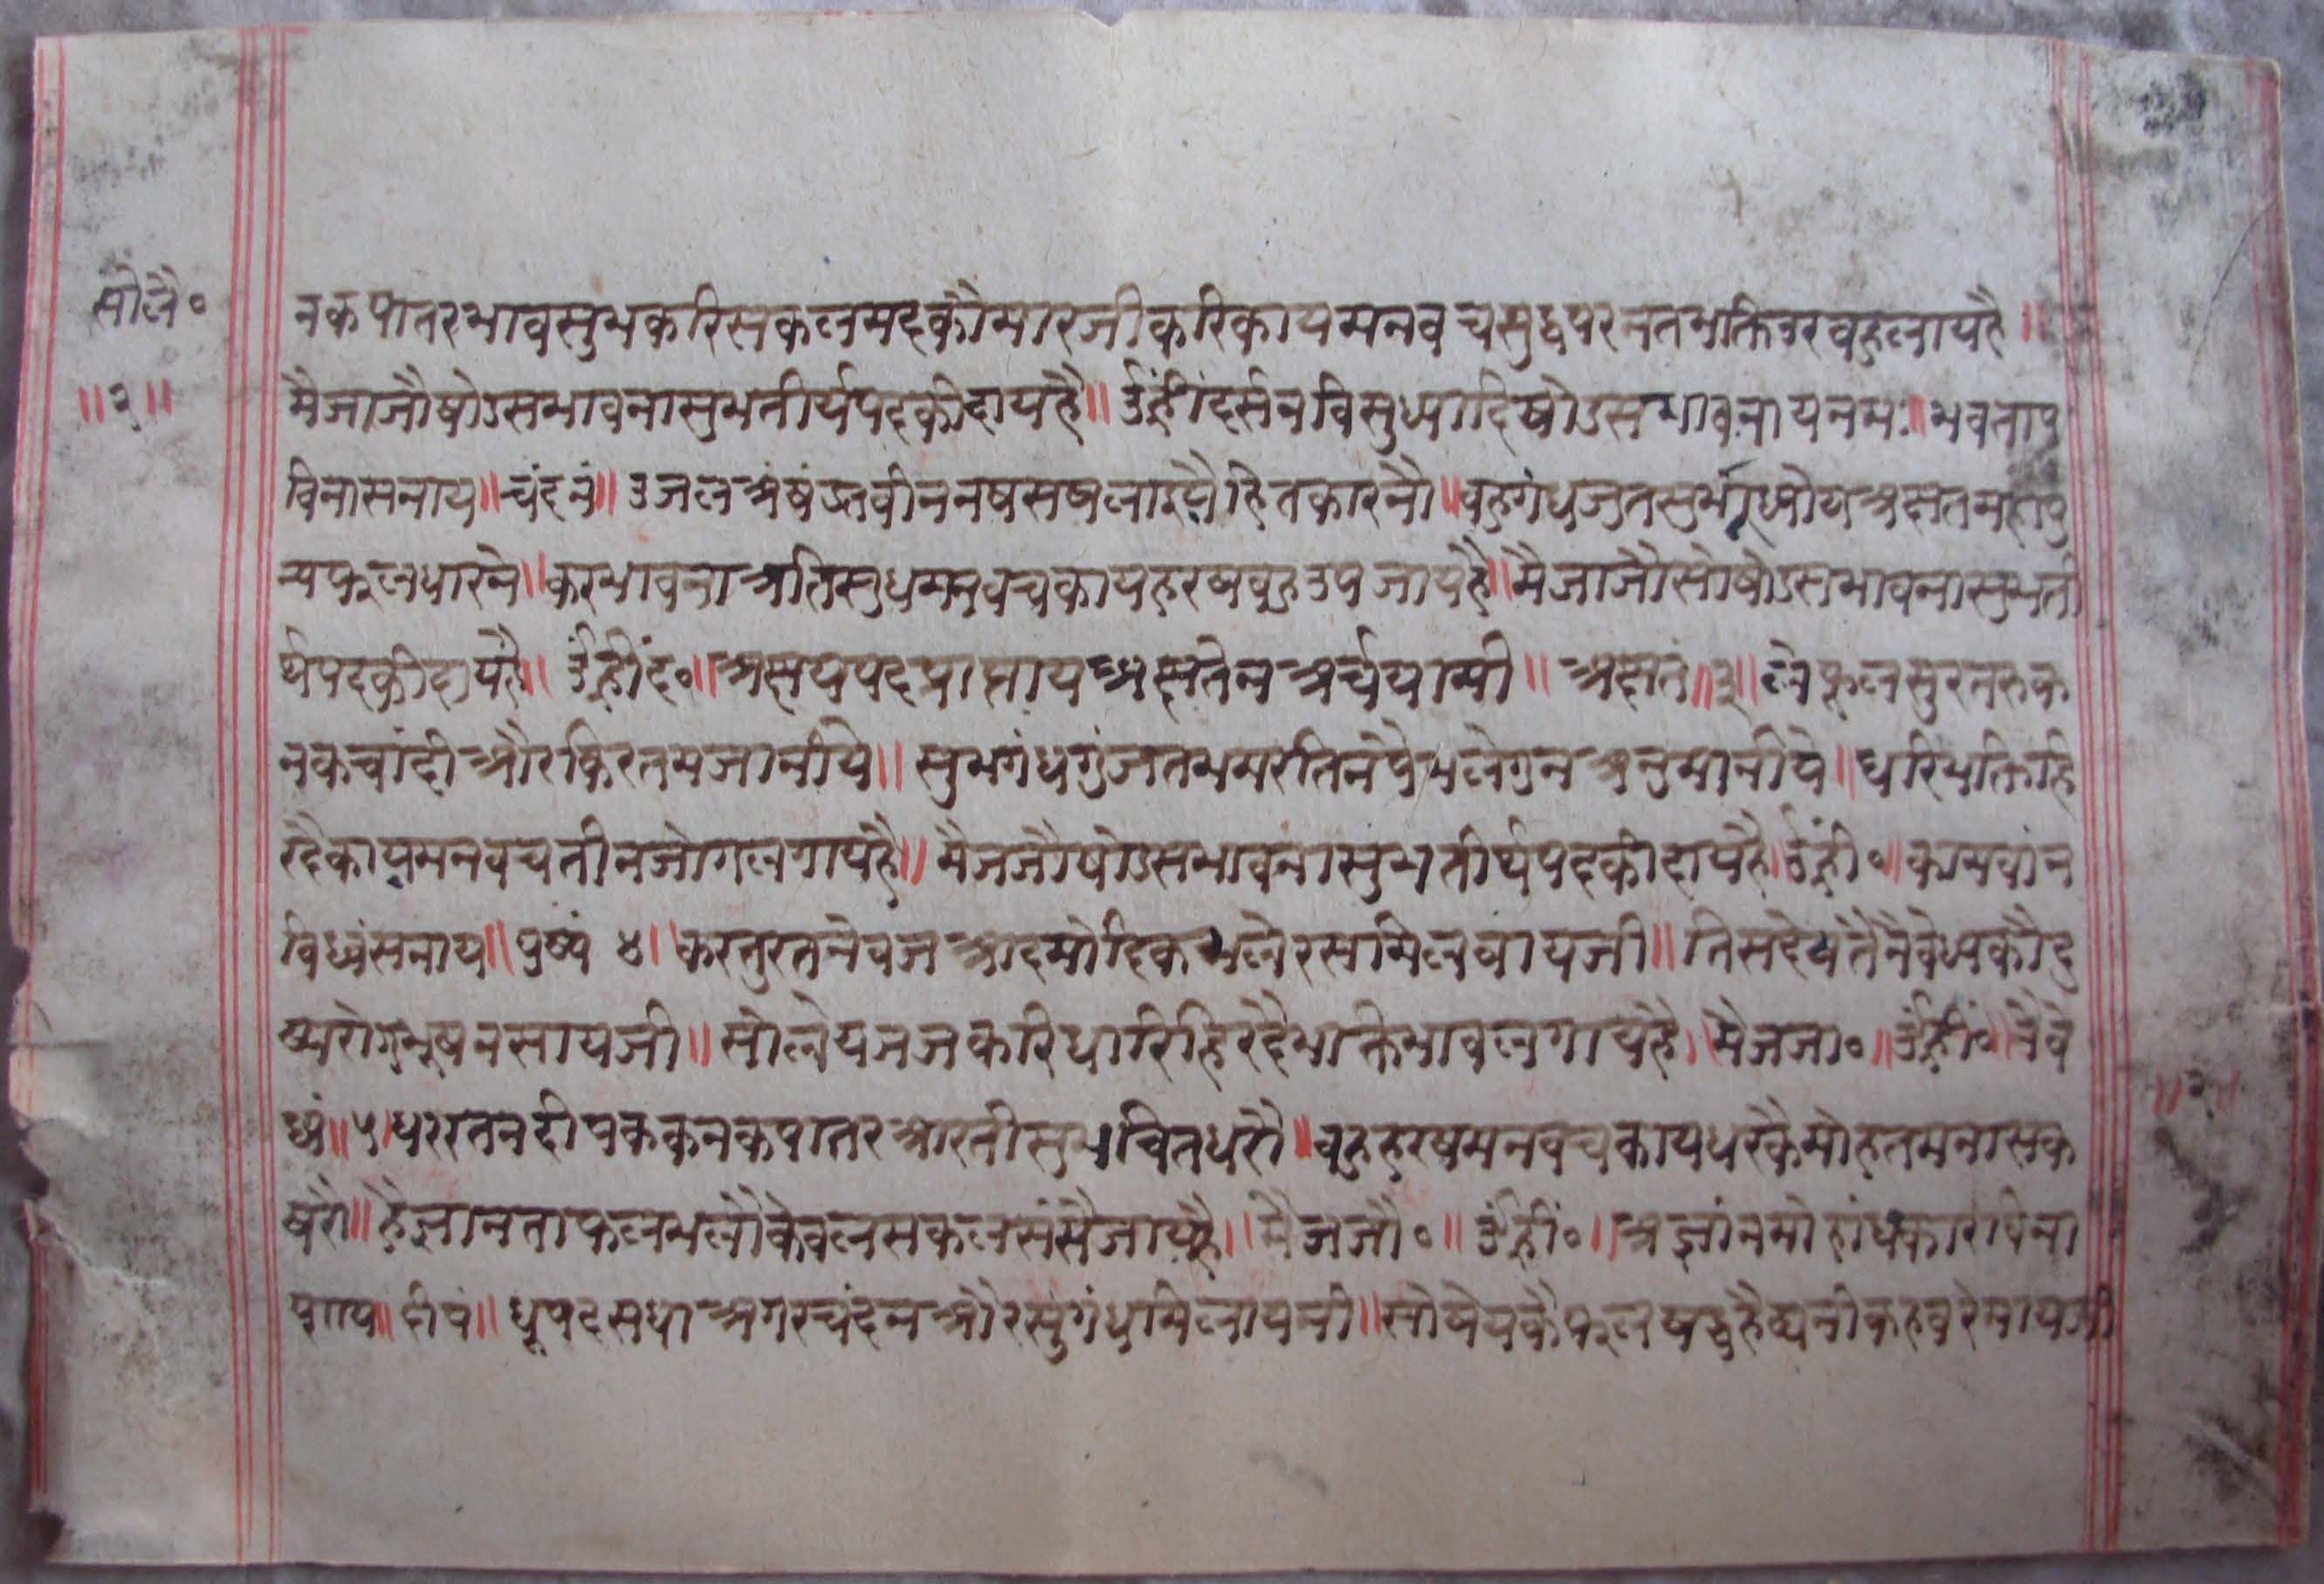 सोलै॰
॥२॥
नकपातरभावसुभकरिसकलमदकौमारजीकरिकायमनवचसुद्धपरनतभक्तिउरवहुलायहै॥
मैजाजौषोडसभावनासुभतीर्थपदकीदायहै॥ उँह्रींदर्सनविसुध्यादिषोडसभावनायनमः॥भवताप
विनासनाय॥चंदनं॥उजलअषंडतवीननषसषलाइहौहितकारनौ॥वहुगंधजुत अक्षतमहापु
न्यफलधारने॥करभावनाअतिसुधमनवचकायहरषवहुउपजायहै॥मैजाजौसोषोडसभावनासुभती
र्थपदकीदायहै॥ उँह्रींद॰॥अक्षयपदप्राप्तायअक्षतेनअर्चयामी॥ अक्षतं॥३॥लेफूलसुरतरुक
नकचांदीऔरकिरतमजानीये॥ सुभगंधगुंजतभमरतिनपेभलेगुनअनुमानीये॥धरिभक्तिहि
रदैकायमनवचतीनजोगलगायहै॥मैजजौषोडसभावनासुभतीर्थपदकीदायहै॥उँह्रीं॰॥कामवांन
विध्वंसनाय॥पुष्पं ४॥करतुरतनेवजआदमोदिकभलेरसमिलवायजी॥तिसदेषतेंनैवेध्यकौदु
ष्यरोगभूषनसायजी॥सोलेयजजकरिधारिहिरदैभक्तिभावलगायहै॥मैजजा॰॥उँह्रीं॰॥नैवे
ध्यं॥५॥धररतनदीपककनकपातरआरतीसुभचितधरौ॥वहुहरषमनवचकायधरकैमोहतमनासक
षरौ॥हैज्ञानताफलभलौकेवलसकलसंसैजायहै॥मैजजौ॰॥उँह्रीं॰॥अज्ञांनमोहांधकारविना
षनाय॥दीपं॥धूपदसधाअगरचंदनऔरसुंगंधमिलायनी॥
॥२॥